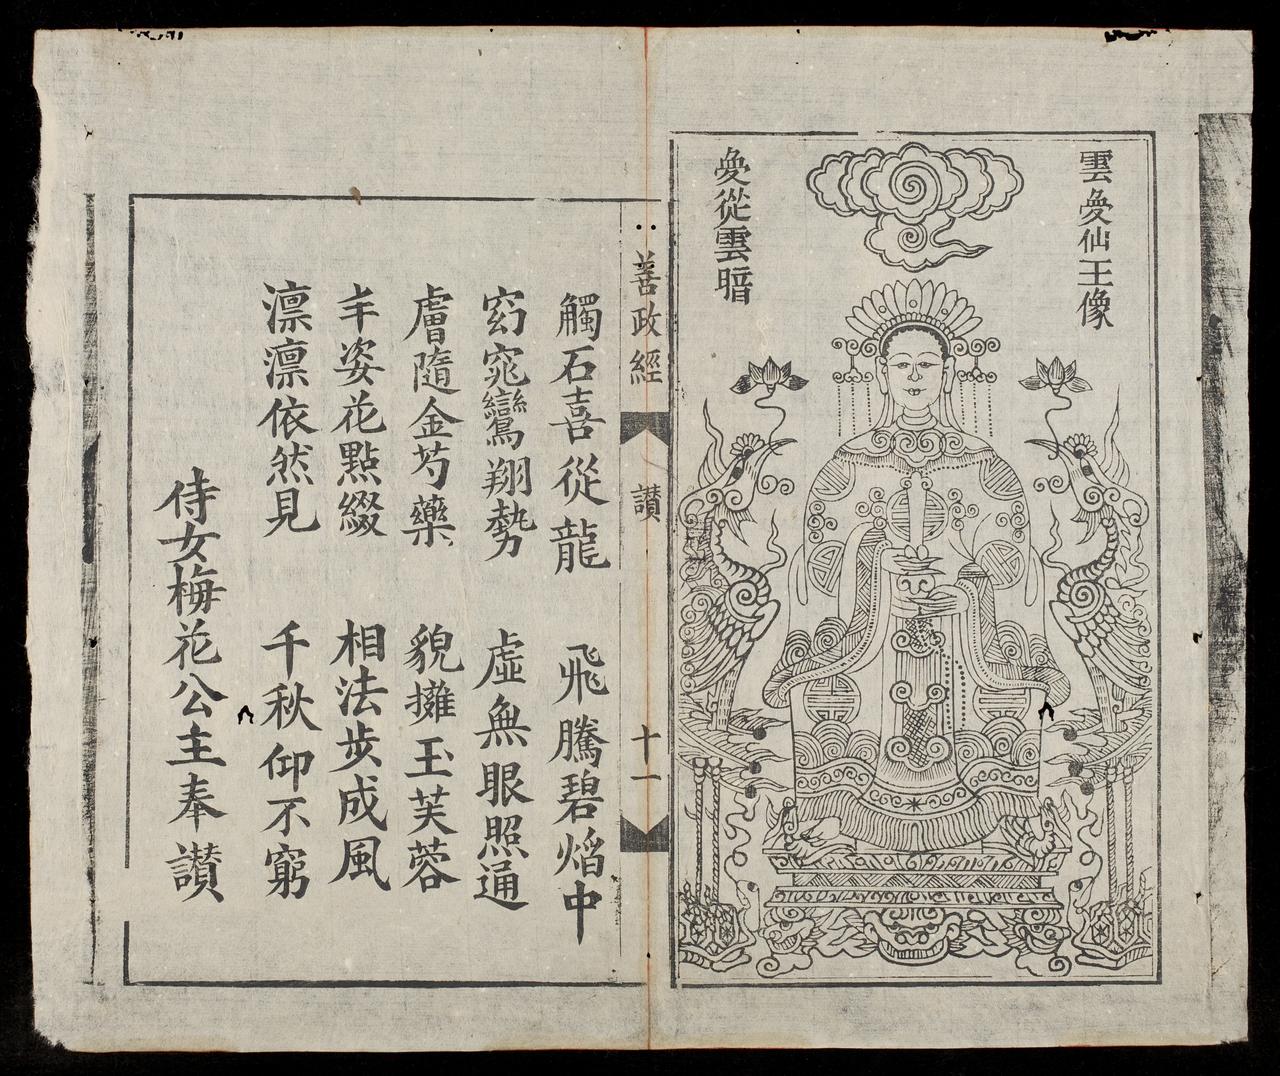 雲㕙仙王像
㕙從雲暗
善政經
讃
十一
觸石喜從龍 飛騰碧焰中
窈窕鸞翔勢 虛無眼照通
膚隨金芍藥 貌擁玉芙蓉
丰姿花點綴 相法步成風
凛凛依然見 千秋仰不窮
侍女梅花公主奉讃